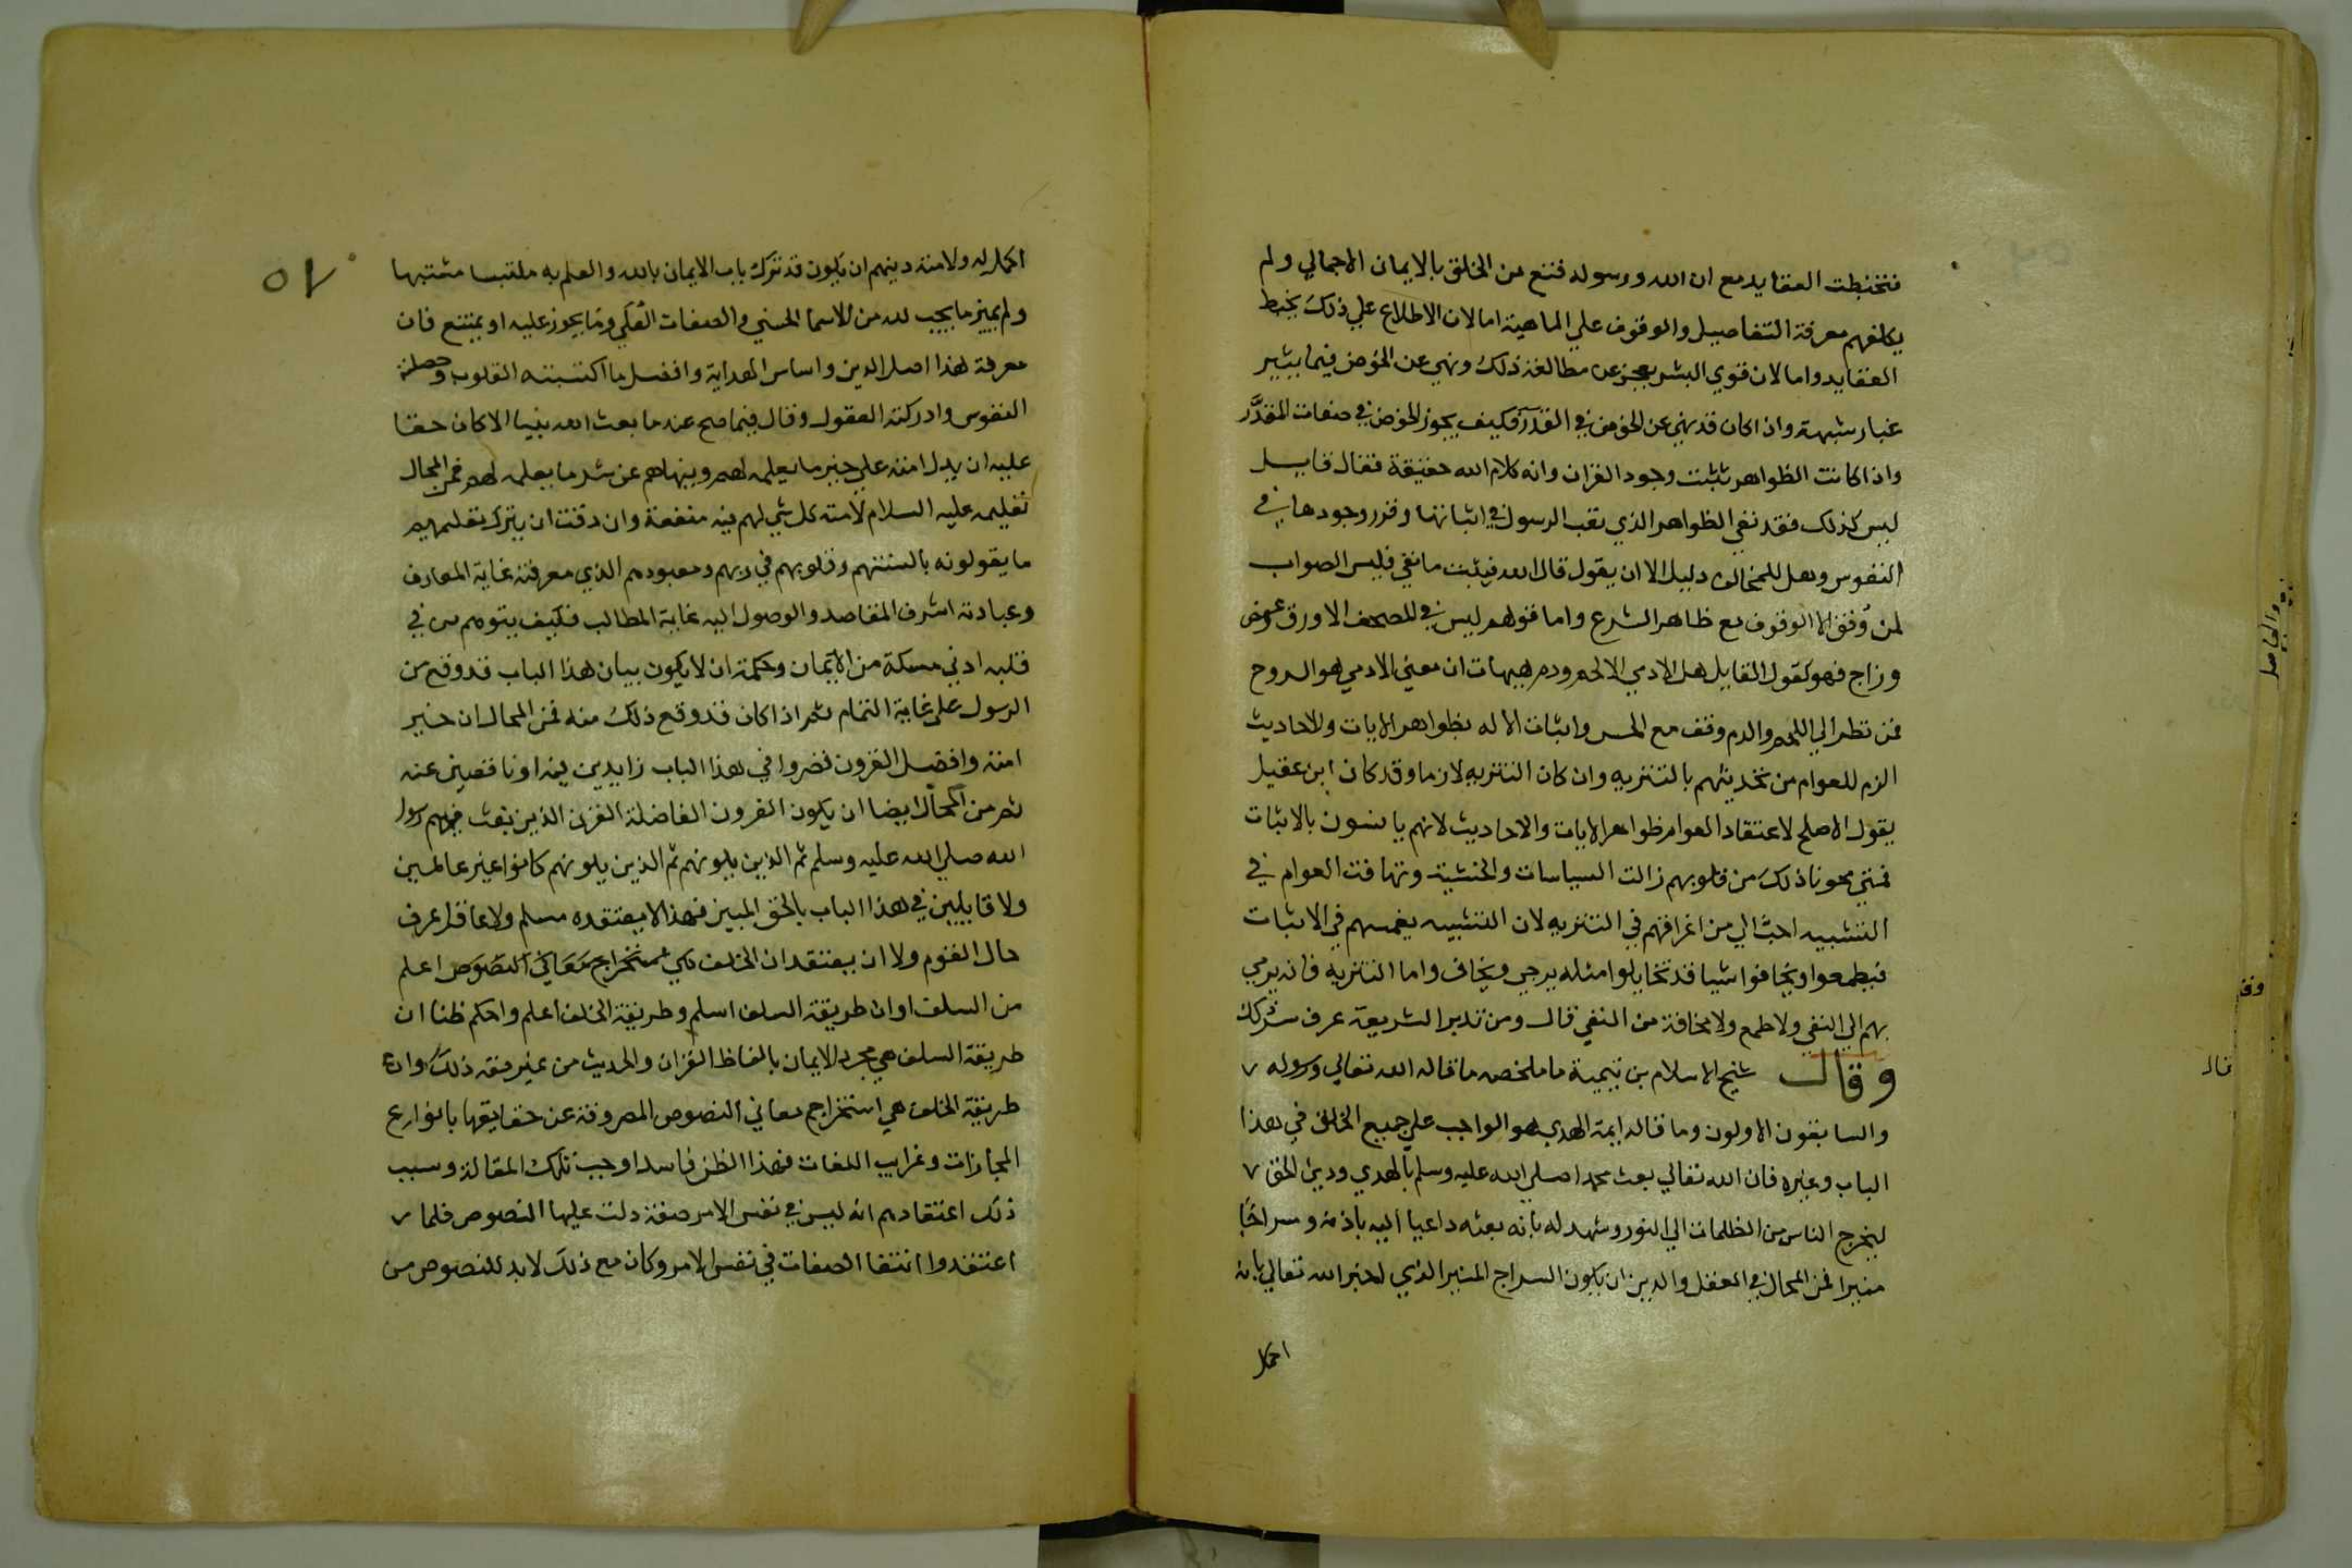 فتخبطت العقايد مع ان الله ورسوله قنع من الخلق بالايمان الاجمالي ولم
يكلفهم معرفة التفاصيل والوقوف علي الماهية اما لان الاطلاع علي ذلك يخبط
العقايد واما لان قوي البشر يعجز عن مطالعة ذلك ونهي عن الخوض فيما يثير
غبار شبهة واذا كان قد نهي عن الخوض في القدر فكيف يجوز الخوض في صفات المقدَّر
واذا كانت الظواهر تثبت وجود القران وانه كلام الله حقيقة فقال قايل
ليس كذلك فقد نفي الظواهر الذي تعب الرسول في اثباتها وقرر وجودها في
النفوس وهل للمخالف دليل الا ان يقول قال الله فيثبت ما نفي فليس الصواب
لمن وُفق الا الوقوف مع ظاهر الشرع واما قولهم ليس في المصحف الا ورق وعفص
وزاج فهو كقول القايل هل الادمي الا لحم ودم هيهات ان معني الادمي هو الروح
فمن نظر الي اللحم والدم وقف مع الحس واثبات الاله بظواهر الايات والاحاديث
الزم للعوام من تحديثهم بالتنزيه وان كان التنزيه لازما وقد كان ابن عقيل
يقول الاصلح لاعتقاد العوام ظواهر الايات والاحاديث لانهم يانسون بالاثبات
فمتي محونا ذلك من قلوبهم زالت السياسات والخشية وتهافت العوام في
التشبيه احبّ الي من اغراقهم في التنزيه لان التشبيه يغمسهم في الاثبات
فيطمعوا ويخافوا شيا قد تخايلوا مثله يرجي ويخاف واما التنزيه فانه يرمي
بهم الي النفي ولا طمع ولا مخافة من النفي قال ومن تدبر الشريعة عرف
وقال شيخ الاسلام بن تيمية ما ملخصه ما قاله الله تعالي ورسوله
والسابقون الاولون وما قاله ايمة الهدي هو الواجب علي جميع الخلق في هذا
الباب وغيره فان الله تعالي بعث محمدا صلي الله عليه وسلم بالهدي ودين الحق
ليخرج الناس من الظلمات الي النور وشهد له بانه بعثه داعيا اليه باذنه وسراجًا
منيرا فمن المحال في العقل والدين ان يكون السراج المنير الذي اخبر الله تعالي بانه
اكمل
٥٧
اكمل له ولامته دينهم ان يكون قد ترك باب الايمان بالله والعلم به ملتبسا مشتبها
ولم يميز ما يجب لله من الاسما الحسني والصفات العُلي وما يجوز عليه او يمتنع فان
معرفة هذا اصل الدين واساس الهداية وافضل ما اكتسبته القلوب وحصلته
النفوس وادركته العقول وقال فيما صح عنه ما بعث الله نبيا الا كان حقا
عليه ان يدل امته علي خير ما يعلمه لهم وينهاهم عن شر ما يعلمه لهم فمن المحال
تعليمه عليه السلام لامته كل شي لهم فيه منفعة وان دقت ان يترك تعليمهم
ما يقولونه بالسنتهم وقلوبهم في ربهم ومعبودهم الذي معرفته غاية المعارف
وعبادته اشرف المقاصد والوصول اليه غاية المطالب فكيف يتوهم من في
قلبه ادني مسكة من الايمان وحكمة ان لا يكون بيان هذا الباب قد وقع من
الرسول علي غاية التمام ثم اذا كان قد وقع ذلك منه فمن المحال ان خير
امته وافضل القرون قصروا في هذا الباب زايدين فيه او ناقصين عنه
ثم من المحال ايضا ان يكون القرون الفاضلة القرن الذين بعث فيهم رسول
الله صلي الله عليه وسلم ثم الذين يلونهم ثم الذين يلونهم كانوا غير عالمين
ولا قايلين في هذا الباب بالحق المبين فهذا لا يعتقده مسلم ولا عاقل عرف
حال القوم ولا ان يعتقد ان الخلف في استخراج معاني النصوص اعلم
من السلف او ان طريقة السلف اسلم وطريقة الخلف اعلم واحكم ظنا ان
طريقة السلف هي مجرد الايمان بالفاظ القران والحديث من غير فقه ذلك وان
طريقة الخلف هي استخراج معاني النصوص المصروفة عن حقايقها بانوارع
المجازات وغرايب اللغات فهذا الظن فاسد اوجب تلك المقالة وسبب
ذلك اعتقادهم انه ليس في نفس الامر صفة دلت عليها النصوص فلما
اعتقدوا انتفا الصفات في نفس الامر وكان مع ذلك لا بد للنصوص من